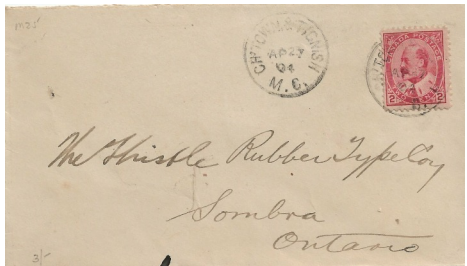 CH'TOWN & TIGNISH
AP
04
M. C.
CANADA POSTAGE
2 2
The Thistle Rubber Type Coy
Sombra
Ontario
3/-